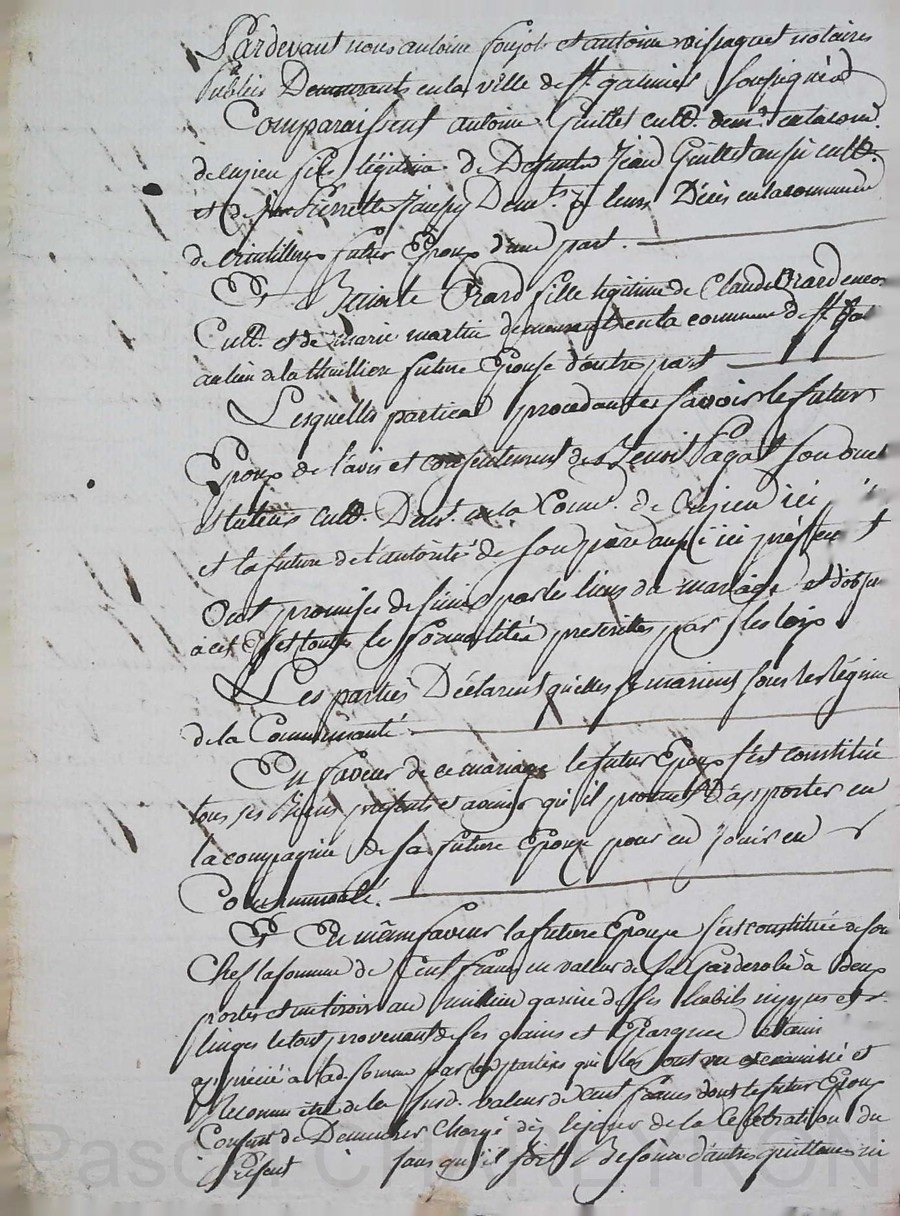 Pardevant nous antoine et antoine notaires
publics Demeurants en la ville de St galmier soussignés
Comparaissent antoine Guillet cult. dem.t en la com.
de Cuzieu fils légitime de Defunts Jean Guillet aussi cult.
et de Pierrette Dem.ts à leurs Décès en la commune
de futur Epoux d'une part.
Et Benoite Crard fille légitime de Claude Crard
Cult. et de marie martin demeurants en la commune de St Gal
au lieu de la thuilliere future Epouse d'autre part
Lesquelles parties procedantes savoir le futur
Epoux de l'avis et consentement de Benoit Pagat son oncle
et tuteur cult. Dem.t en la Com. de Cuzieu ici
et la future de l'autorité de son père aussi ici présent
Ont promis de s'unir par les liens du mariage et d'obs
à cet Effet toutes les formalités prescrites par les loix
Les parties Déclarent qu'elles se marient sous le régime
de la Communauté.
En faveur de ce mariage le futur Epoux s'est constitué
tous ses Biens présents et avenir qu'il promet D'apporter en
la compagnie de sa future Epouse pour en Jouir en
Communauté.
Et En même faveur la future Epouse s'est constituée de son
Chef la somme de Cent francs en valeur de sa Garderobe à deux
portes et un tiroir au millieu garnie de ses habits nippes et
linges le tout provenant de ses gains et Epargnes
apprécié à lad. somme par les parties qui les ont vu examiné et
Reconnu être de la susd. valeur de Cent francs dont le futur Epoux
Consent de Demeurer Chargé dès le jour de la Celebration du
Présent sans qu'il soit Besoin d'autre quittance ni
Pascal CHAREYRON